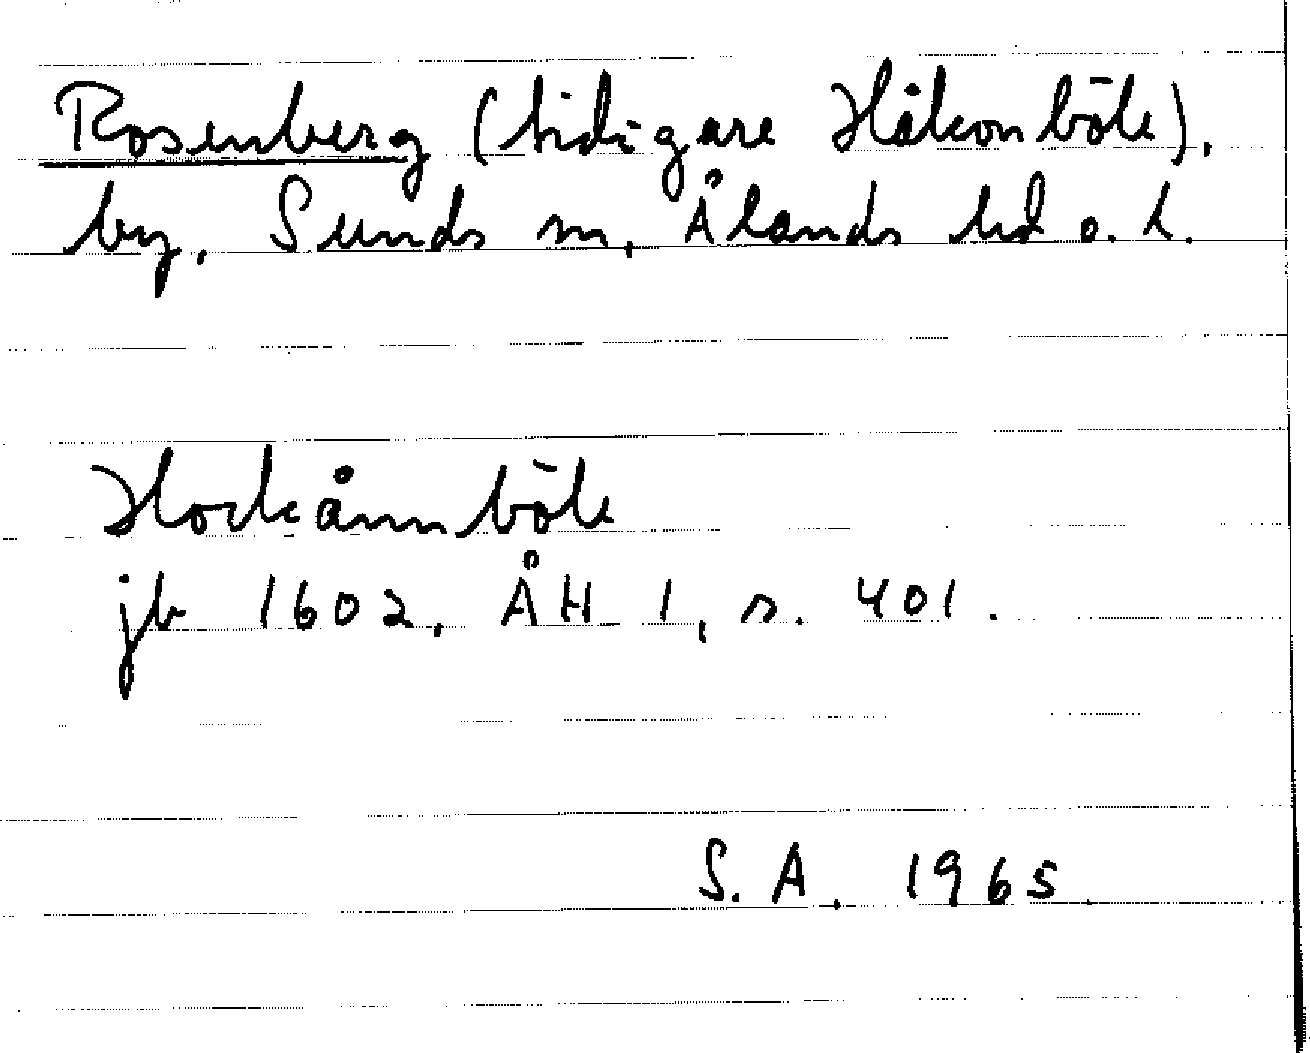 Rosenberg (tidigare Håkonböle),
by, Sunds sn, Ålands hd o. l.
Hockånnböle
jb 1602, ÅH 1, s. 401.
S. A. 1965